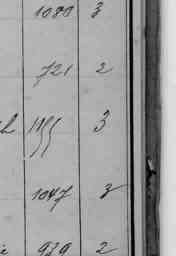 1080 3
721 2
3
1047 3
929 2